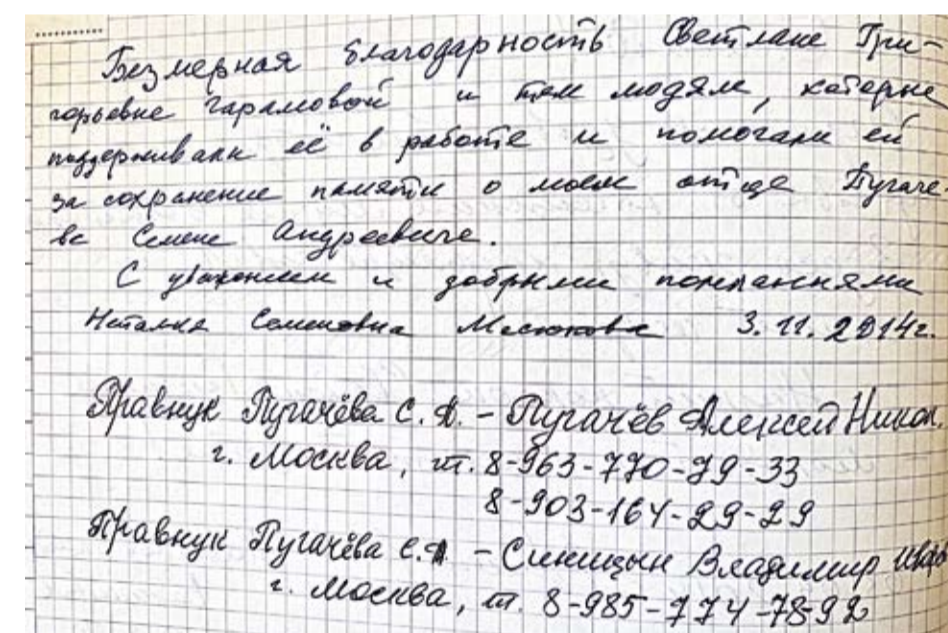 Безмерная благодарность Светлане Гри-
горьевне Гарамовой и тем людям, которые
поддерживали её в работе и помогали ей
за сохранение памяти о моем отце Пугаче-
ве Семене Андреевиче.
С уважением и добрыми пожеланиями
Наталья Семеновна 3.11.2014г.
Правнук Пугачёва С.А. - Пугачёв Алексей Никол.
г. Москва, т. 8-963-770-79-33
8-903-164-29-29
Правнук Пугачёва С.А. - Синицын Владимир
г. Москва, т. 8-985-774-78-92